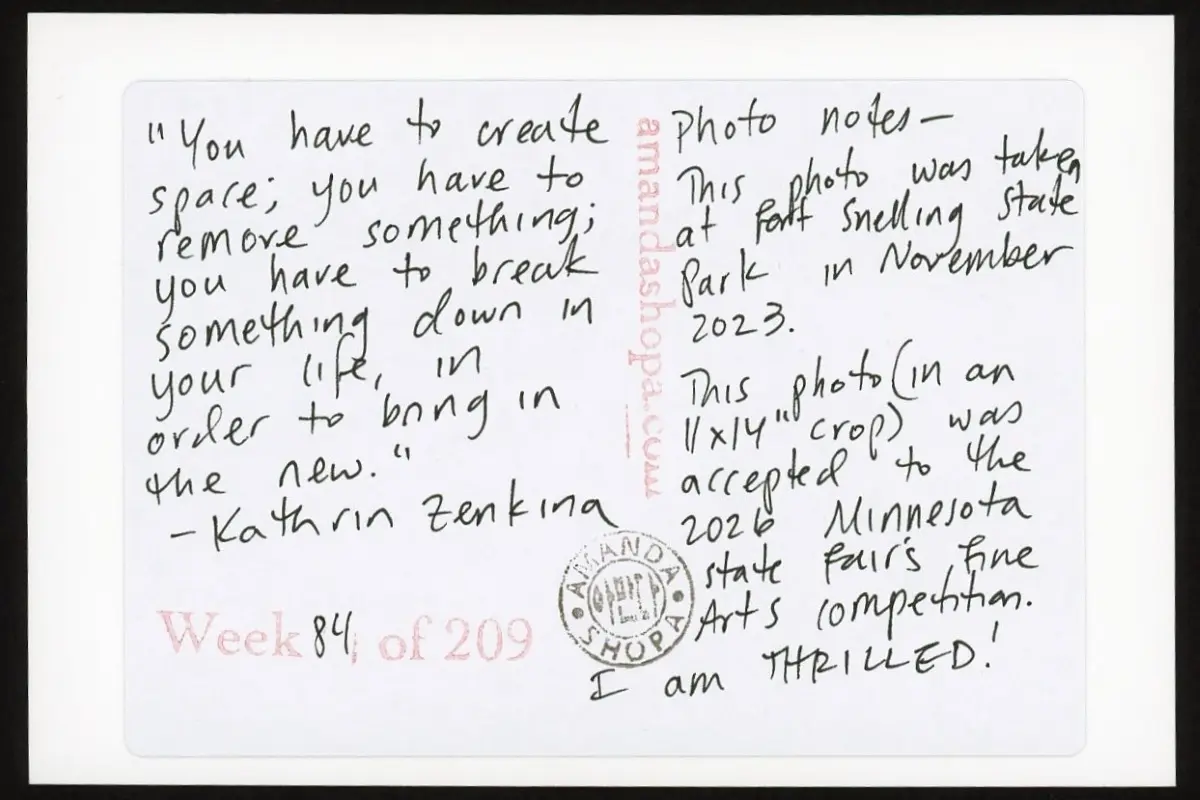 "You have to create
space; you have to
remove something;
you have to break
something down in
your life, in
order to bring in
the new."
- Kathrin Zenkina
Week 84 of 209
amandashopa.com
AMANDA
SHOPA
Photo notes—
This photo was taken
at Fort Snelling State
Park in November
2023.
This photo (in an
11x14" crop) was
accepted to the
2026 Minnesota
State Fair's Fine
Arts competition.
I am THRILLED!